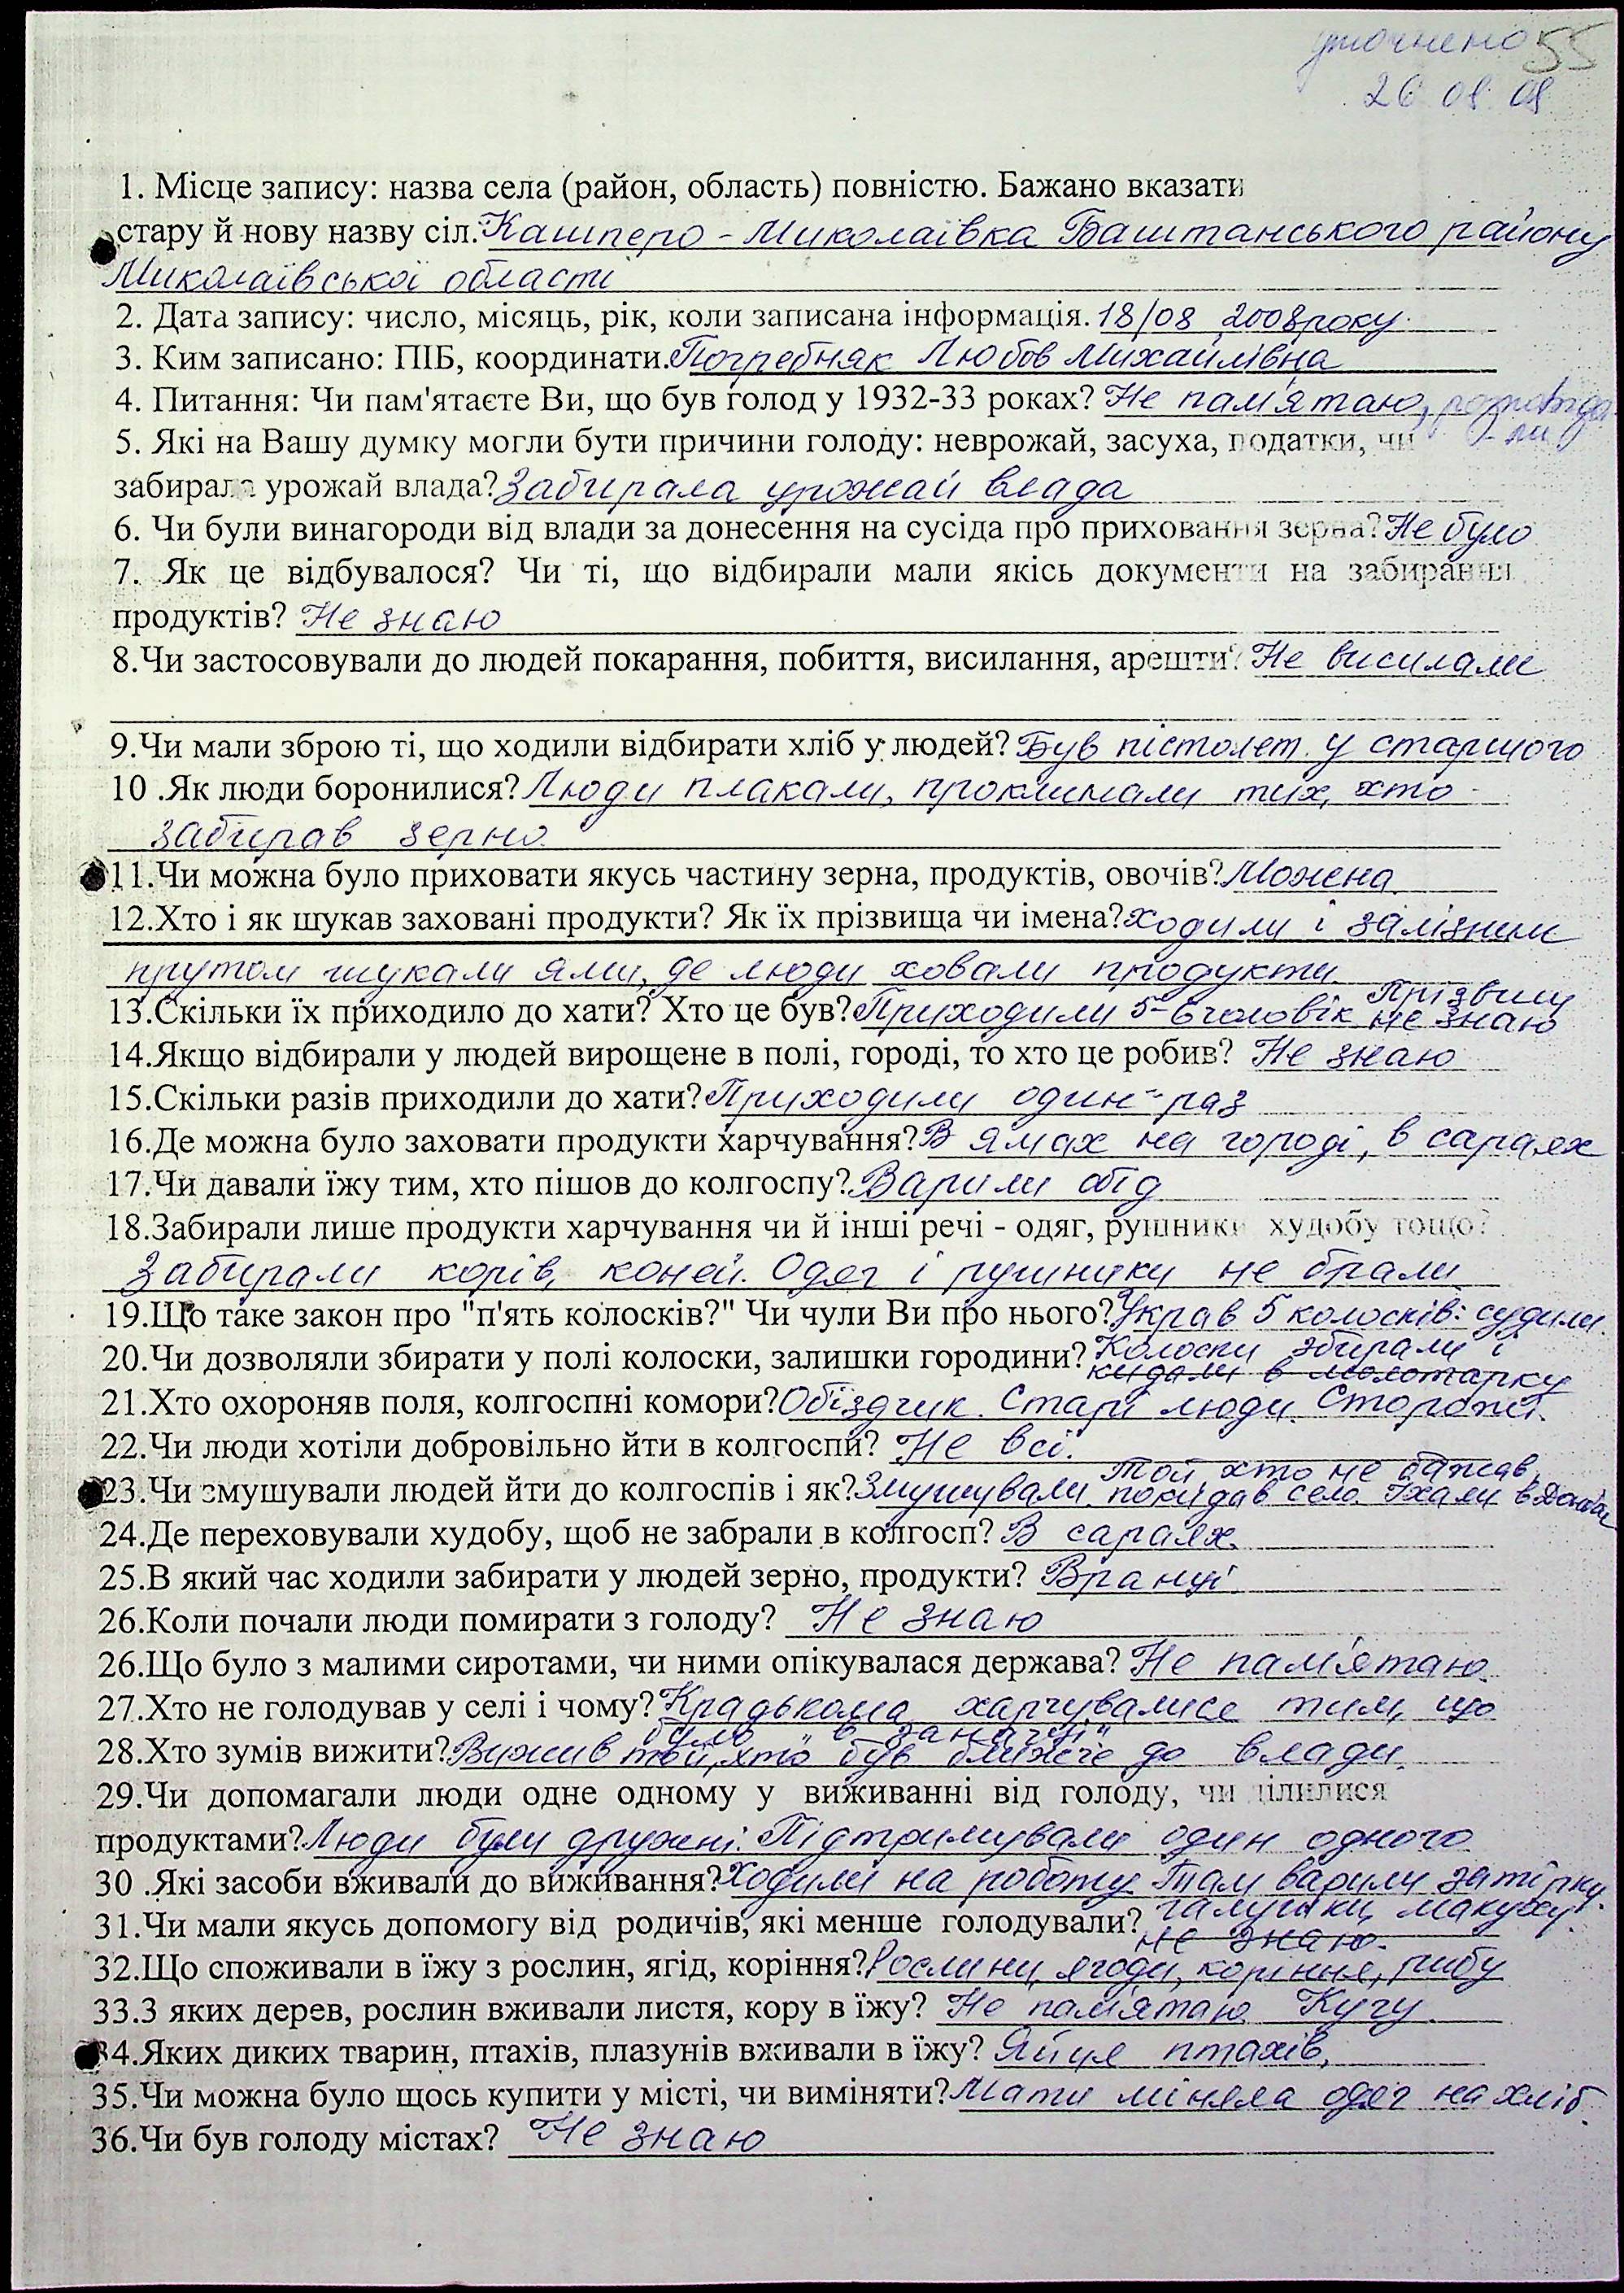 уточнено 55
26.08.08
1. Місце запису: назва села (район, область) повністю. Бажано вказати
стару й нову назву сіл. Кашперо-Миколаївка Баштанського району
Миколаївської області
2. Дата запису: число, місяць, рік, коли записана інформація. 18/08 2008 року.
3. Ким записано: ПІБ, координати. Погребняк Любов Михайлівна
4. Питання: Чи пам'ятаєте Ви, що був голод у 1932-33 роках? Не пам'ятаю, розповіда
- ли
5. Які на Вашу думку могли бути причини голоду: неврожай, засуха, податки, чи
забирала урожай влада? Забирала урожай влада
6. Чи були винагороди від влади за донесення на сусіда про приховання зерна? Не було
7. Як це відбувалося? Чи ті, що відбирали мали якісь документи на забирання
продуктів? Не знаю
8.Чи застосовували до людей покарання, побиття, висилання, арешти? Не висилали
9.Чи мали зброю ті, що ходили відбирати хліб у людей? Був пістолет у старшого
10 .Як люди боронилися? Люди плакали, проклинали тих, хто
забирав зерно.
11.Чи можна було приховати якусь частину зерна, продуктів, овочів? Можна
12.Хто і як шукав заховані продукти? Як їх прізвища чи імена? Ходили і залізним
прутом шукали ями, де люди ховали продукти.
13.Скільки їх приходило до хати? Хто це був? Приходили 5-6 чоловік Прізвищ
не знаю
14.Якщо відбирали у людей вирощене в полі, городі, то хто це робив? Не знаю
15.Скільки разів приходили до хати? Приходили один раз
16.Де можна було заховати продукти харчування? В ямах на городі, в сараях
17.Чи давали їжу тим, хто пішов до колгоспу? Варили обід
18.Забирали лише продукти харчування чи й інші речі - одяг, рушники худобу тощо?
Забирали корів, коней. Одяг і рушники не брали
19.Що таке закон про "п'ять колосків?" Чи чули Ви про нього? Украв 5 колосків: судили.
20.Чи дозволяли збирати у полі колоски, залишки городини? Колоски збирали і
кидали в молотарку
21.Хто охороняв поля, колгоспні комори? Обїздчик. Старі люди. Сторожі.
22.Чи люди хотіли добровільно йти в колгоспи? Не всі.
23.Чи змушували людей йти до колгоспів і як? Змушували. Той, хто не бажав,
покидав село. Їхали в Донбас
24.Де переховували худобу, щоб не забрали в колгосп? В сараях.
25.В який час ходили забирати у людей зерно, продукти? Вранці.
26.Коли почали люди помирати з голоду? Не знаю
26.Що було з малими сиротами, чи ними опікувалася держава? Не пам'ятаю
27.Хто не голодував у селі і чому? Крадькома харчувалися тим, що
було в "заначці"
28.Хто зумів вижити? Вижив той, хто був ближче до влади.
29.Чи допомагали люди одне одному у виживанні від голоду, чи ділилися
продуктами? Люди були дружні. Підтримували один одного
30 .Які засоби вживали до виживання? Ходили на роботу. Там варили затірку,
галушки, макуху.
31.Чи мали якусь допомогу від родичів, які менше голодували?
не знаю.
32.Що споживали в їжу з рослин, ягід, коріння? Рослини, ягоди, коріння, рибу
33.З яких дерев, рослин вживали листя, кору в їжу? Не пам'ятаю. Кугу.
34.Яких диких тварин, птахів, плазунів вживали в їжу? Яйця птахів,
35.Чи можна було щось купити у місті, чи виміняти? Мати міняла одяг на хліб.
36.Чи був голоду містах? Не знаю